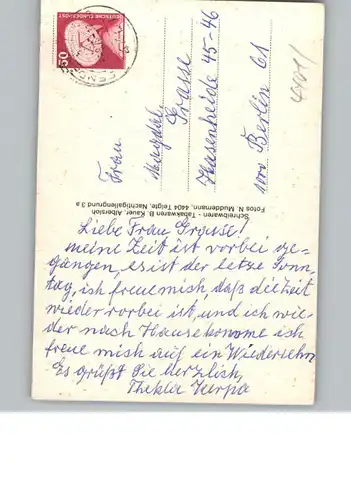 DEUTSCHE BUNDESPOST
50
Frau
Magdal.
Grasse
Hasenheide 45-46
1000 Berlin 61
Schreibwaren - Tabakwaren B. Kauer, Albersloh
Fotos N. Muddemann, 4404 Telgte, Nachtigallengrund 3 a
Liebe Frau Grasse!
meine Zeit ist vorbei ge-
gangen, es ist der letze Sonn-
tag, ich freue mich, daß die Zeit
wieder vorbei ist, und ich wie-
der nach Hause konome ich
freue mich auf ein Wiedersehn
Es grüßt Sie herzlich,
Thekla